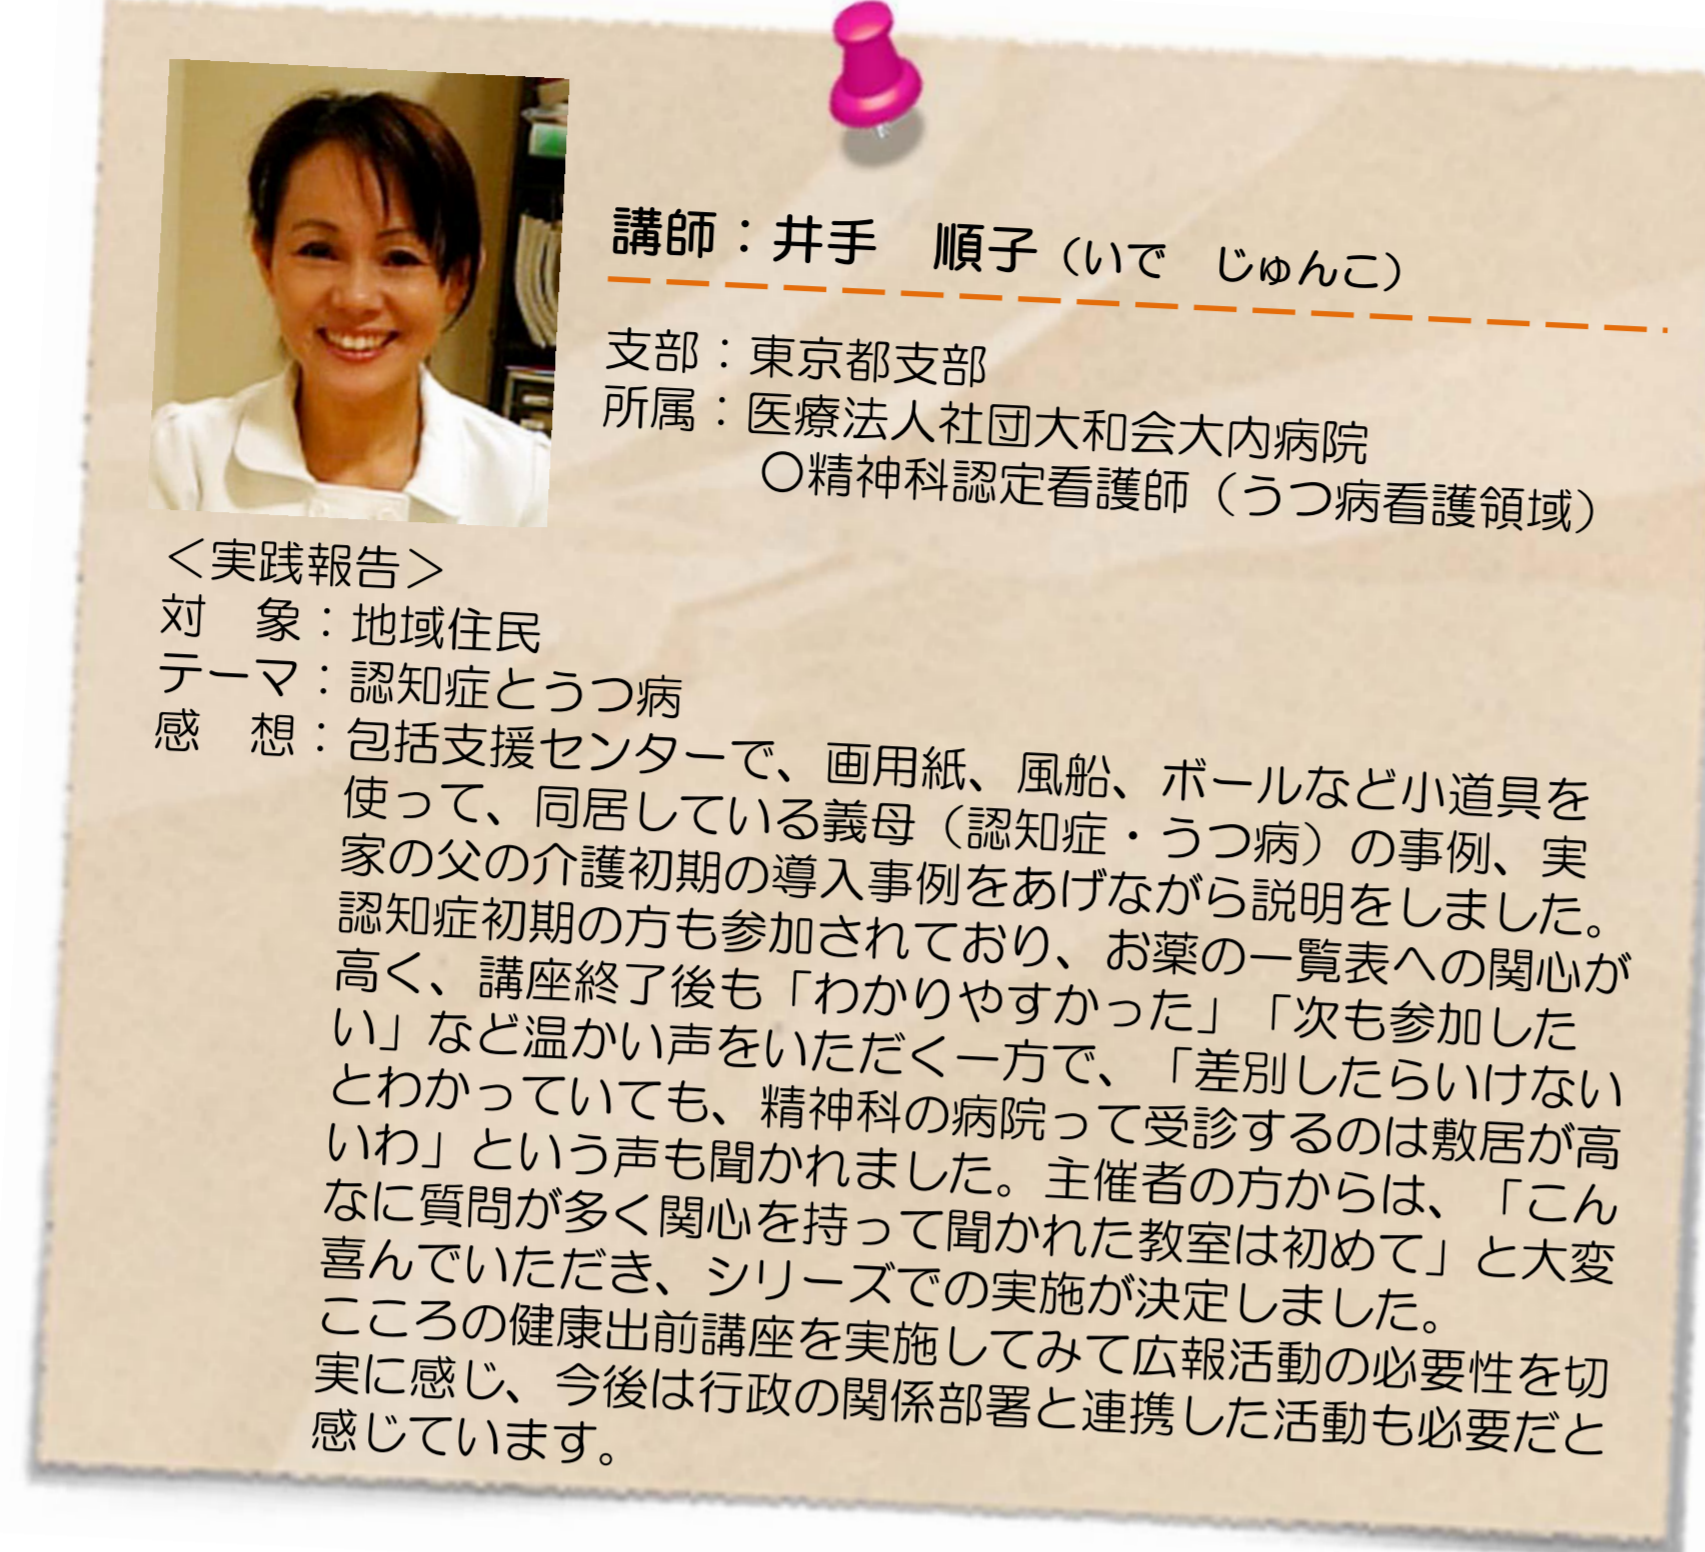 講師：井手　順子（いで　じゅんこ）
支部：東京都支部
所属：医療法人社団大和会大内病院
〇精神科認定看護師（うつ病看護領域）
＜実践報告＞
対　象：地域住民
テーマ：認知症とうつ病
感　想：包括支援センターで、画用紙、風船、ボールなど小道具を
使って、同居している義母（認知症・うつ病）の事例、実
家の父の介護初期の導入事例をあげながら説明をしました。
認知症初期の方も参加されており、お薬の一覧表への関心が
高く、講座終了後も「わかりやすかった」「次も参加した
い」など温かい声をいただく一方で、「差別したらいけない
とわかっていても、精神科の病院って受診するのは敷居が高
いわ」という声も聞かれました。主催者の方からは、「こん
なに質問が多く関心を持って聞かれた教室は初めて」と大変
喜んでいただき、シリーズでの実施が決定しました。
こころの健康出前講座を実施してみて広報活動の必要性を切
実に感じ、今後は行政の関係部署と連携した活動も必要だと
感じています。